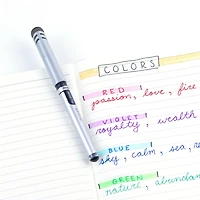 COLORS
RED
passion, love, fire
VIOLET
royalty, wealth
BLUE
sky, calm, sea,
GREEN
nature,